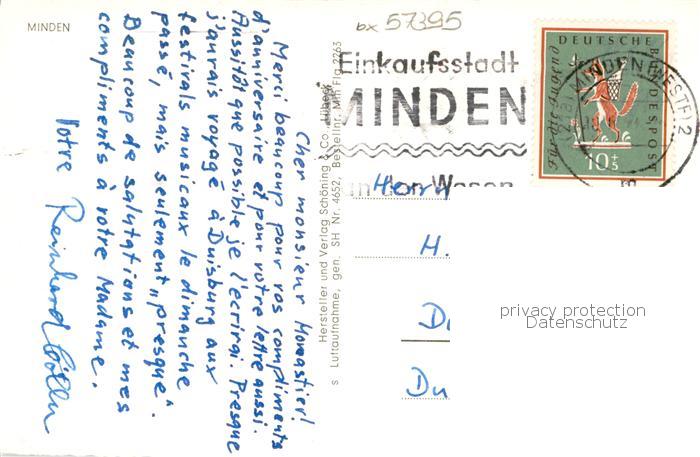 MINDEN
Cher monsieur Monastier!
Merci beaucoup pour vos compliments
d'anniversaire et pour votre lettre aussi.
Aussitôt que possible je l'ecrirai. Presque
j'aurais voyagé à Duisburg aux
festivals musicaux le dimanche
passé, mais seulement „presque“.
Beaucoup de salutations et mes
compliments à votre Madame.
Votre Reinhard
Hersteller und Verlag Schöning & Co., Lübeck
s Luftaufnahme, gen. SH Nr. 4652, Bestellnr. Min Flg 2263
bx 57395
Einkaufsstadt
MINDEN
MINDEN (WESTF) 2
DEUTSCHE
BUNDESPOST
Für die Jugend
10+5
Herrn
H.
D
Du
privacy protection
Datenschutz